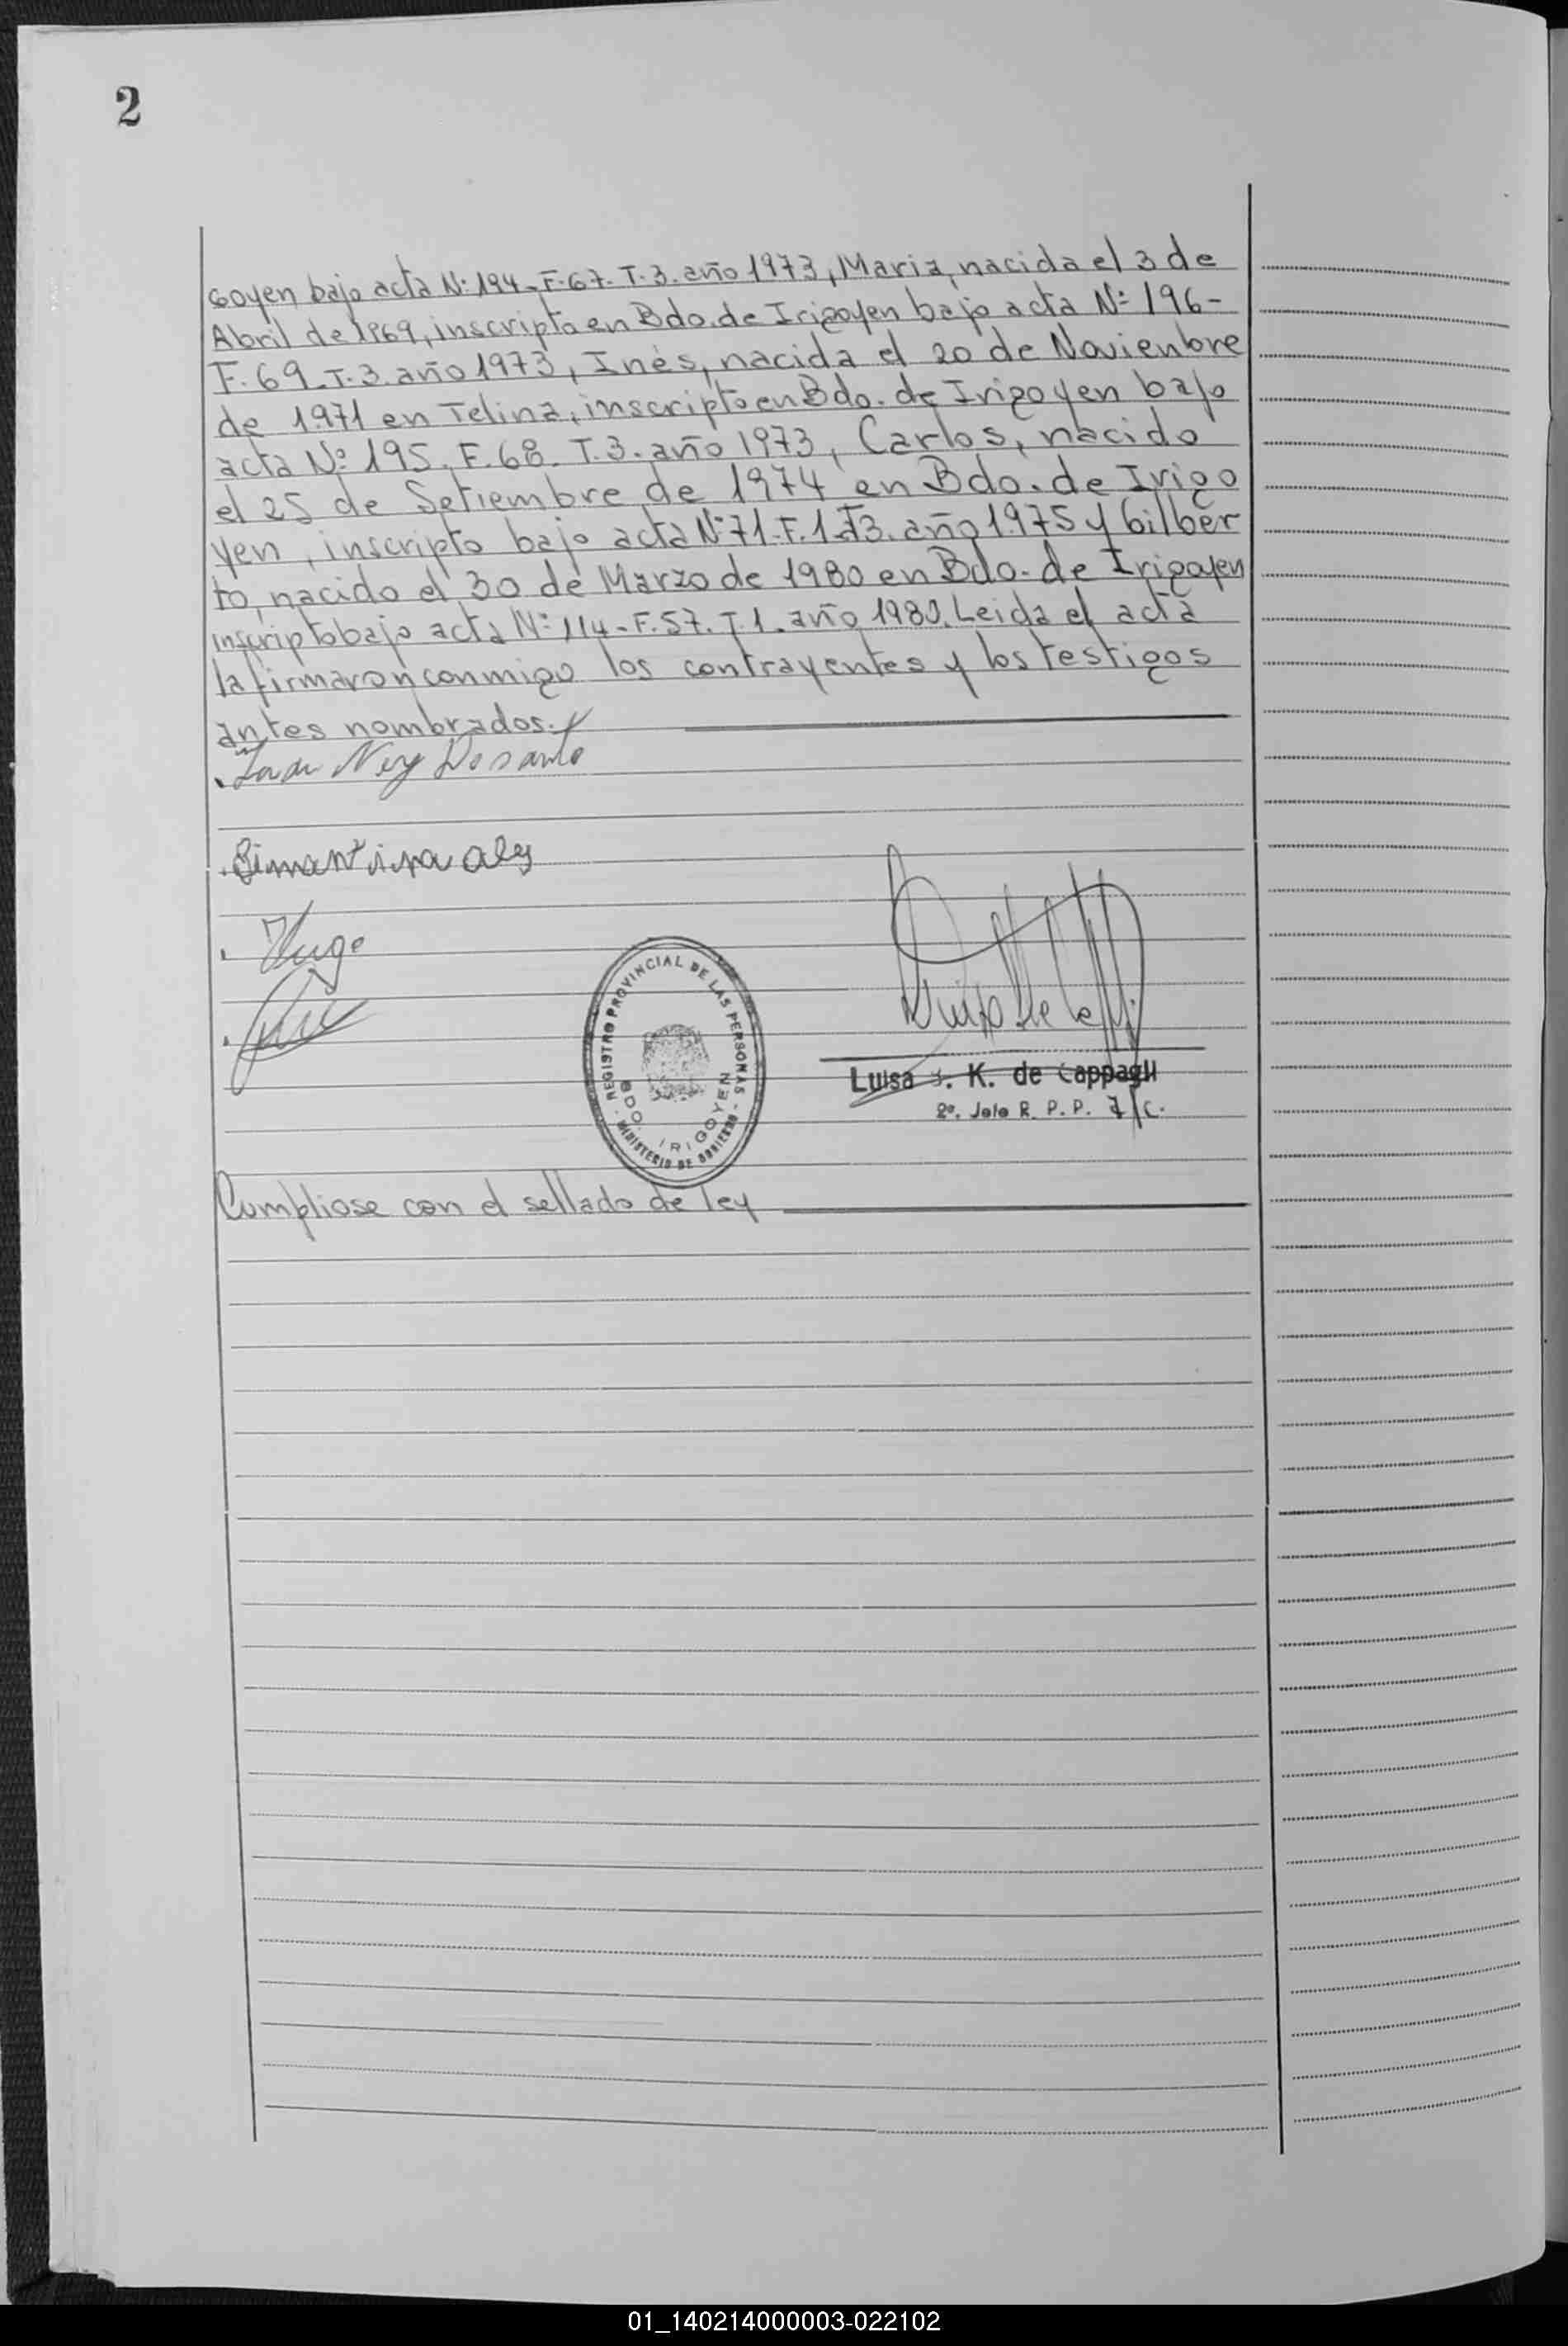 2
goyen, bajo acta Nº 194-F.67.T.3. año 1973, Maria, nacida el 3 de
Abril de 1969, inscripta en Bdo. de Irigoyen bajo acta Nº 196-
F.69.T.3. año 1973, Inés, nacida el 20 de Novienbre
de 1971 en Telina, inscripto en Bdo. de Irigoyen bajo
acta Nº 195. F.68. T.3. año 1973, Carlos, nacido
el 25 de Setiembre de 1974 en Bdo. de Irigo
yen, inscripto bajo acta Nº 71.F.1.T3. año 1975 y Gilber
to, nacido el 30 de Marzo de 1980 en Bdo. de Irigoyen
inscripto bajo acta Nº 114-F.57.T.1. año 1980. Leida el acta
la firmaron conmigo los contrayentes y los testigos
antes nombrados.
Hugo
REGISTRO PROVINCIAL DE LAS PERSONAS
BDO. IRIGOYEN
MINISTERIO DE GOBIERNO
Luisa K. de Cappagli
2º. Jefe R. P. P. I/C.
Cumpliose con el sellado de ley
01_140214000003-022102